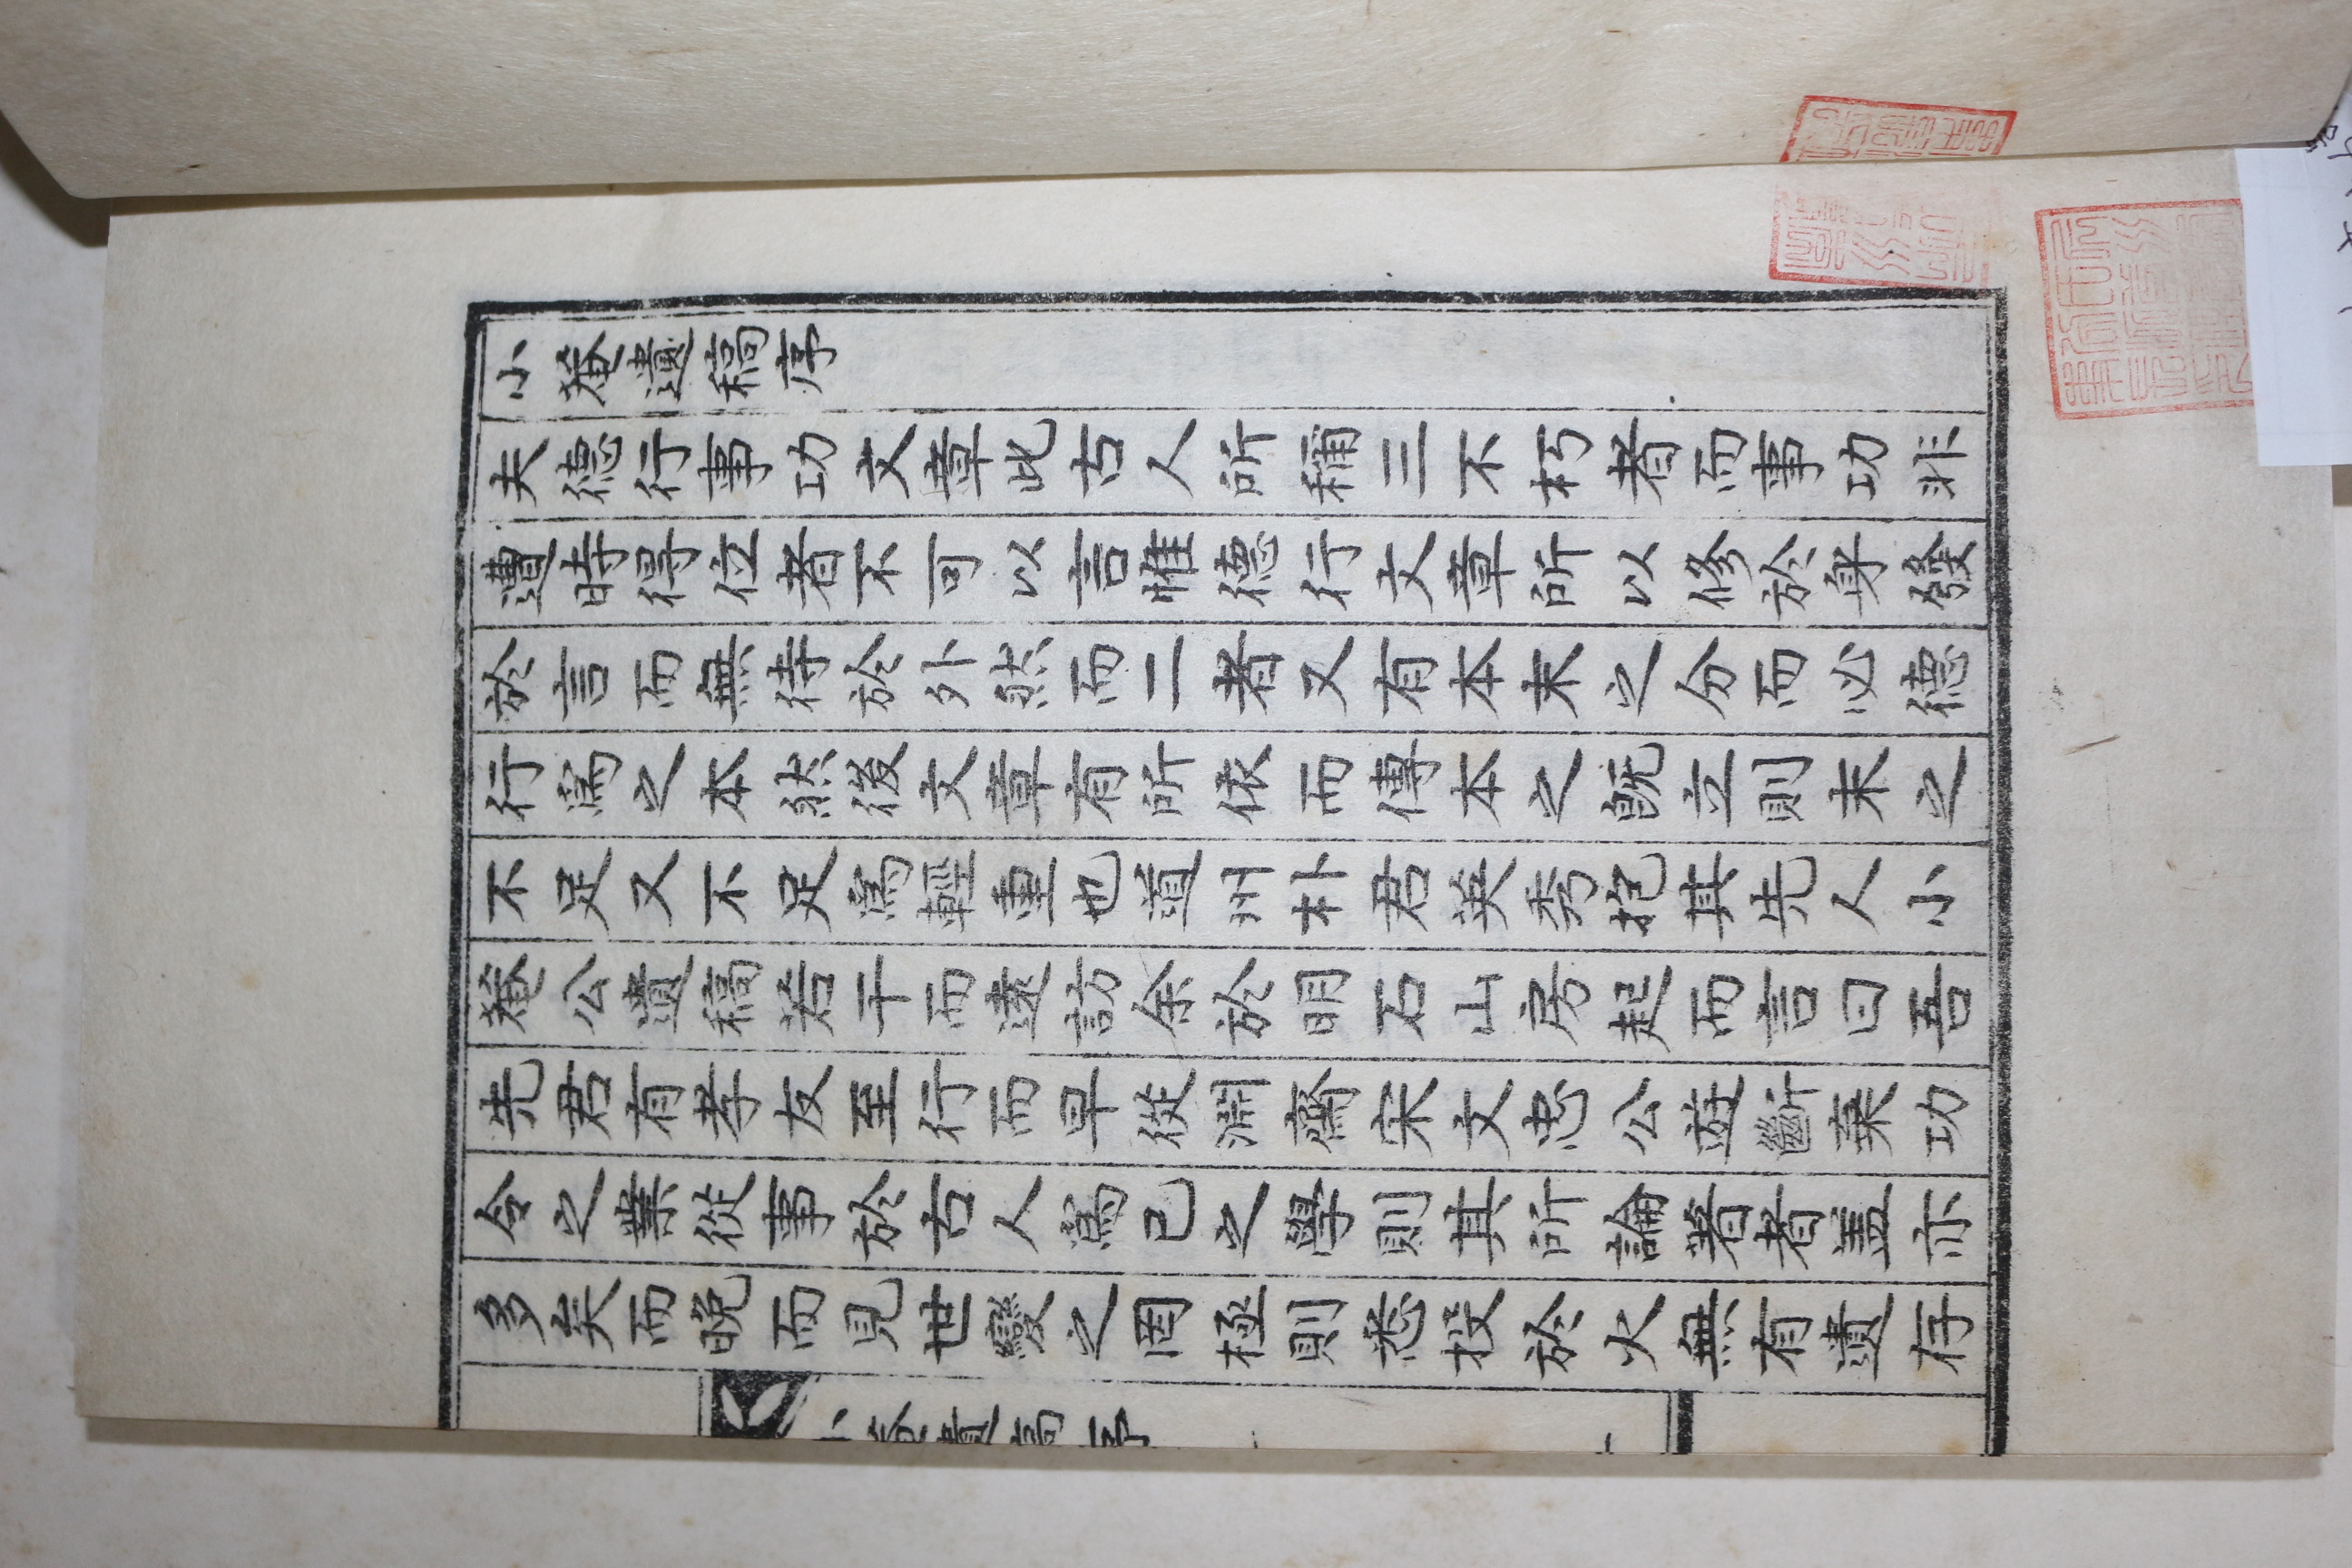 小菴遺稿序
夫德行事功文章此古人所稱三不朽者而事功非
遭時得位者不可以言惟德行文章所以修於身發
於言而無待於外然而二者又有本末之分而必德
行爲之本然後文章有所依而傳本之旣立則末之
不足又不足爲輕重也道州朴君英秀抱其先人小
菴公遺稿若干而遠訪余於明石山房起而言曰吾
先君有孝友至行而早從淵齋宋文忠公遊斷棄功
令之業從事於古人爲己之學則其所論著者盖亦
多矣而晚而見世變之罔極則悉投於火無有遺存
小菴遺稿序